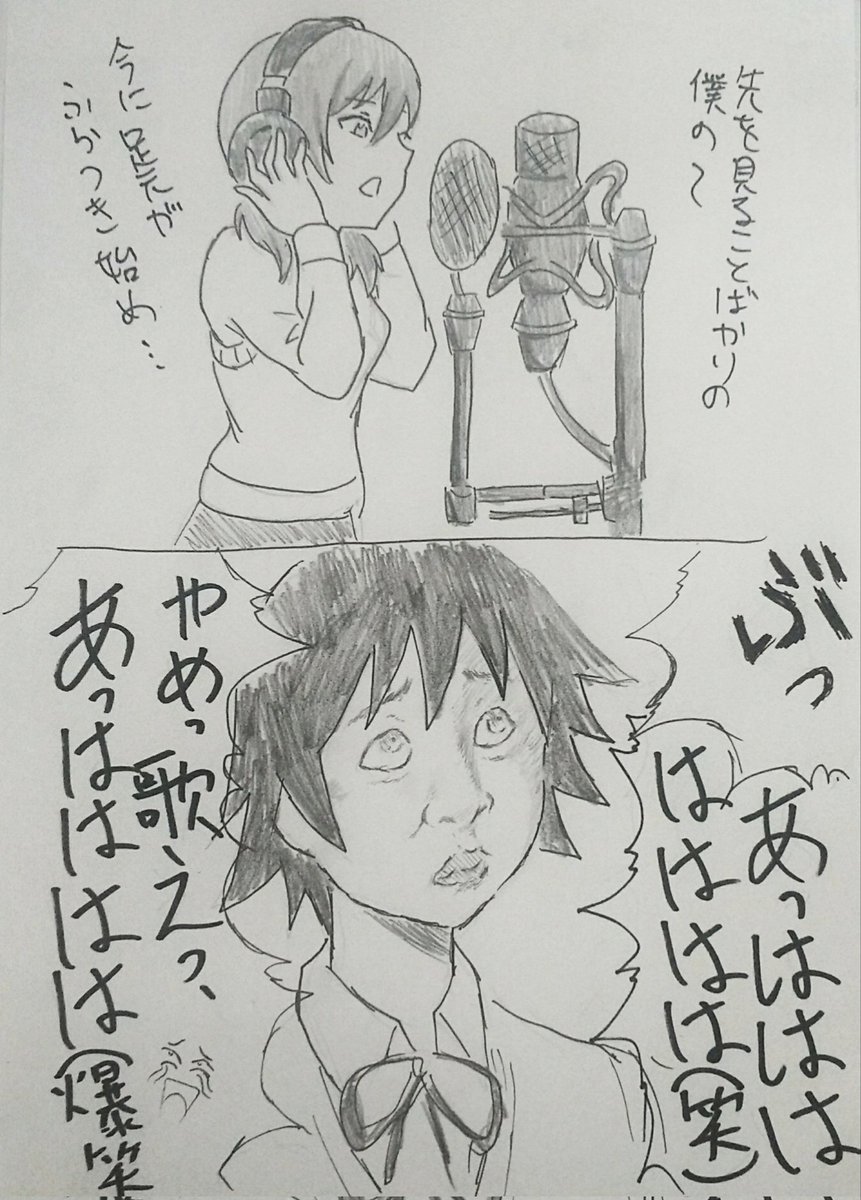 先を見ることばかりの
僕の〜
今に足元が
ふらつき始め…
ぶっ
あっははは
はははは(笑)
やめっ歌えっ、
あっはははは(爆笑